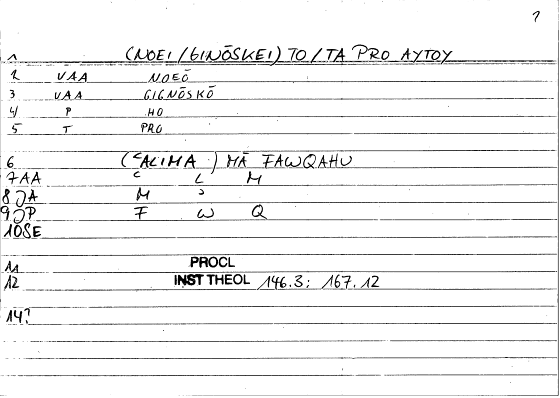 1
1 (NOEI/GINŌSKEI) TO/TA PRO AYTOY
2 VAA NOEŌ
3 VAA GIGNŌSKŌ
4 P HO
5 T PRO
6 (ʿALIMA) MĀ FAWQAHU
7AA ʿ L M
8JA M ʾ
9JP F W Q
10SE
11 PROCL
12 INST THEOL 146.3; 167.12
14?